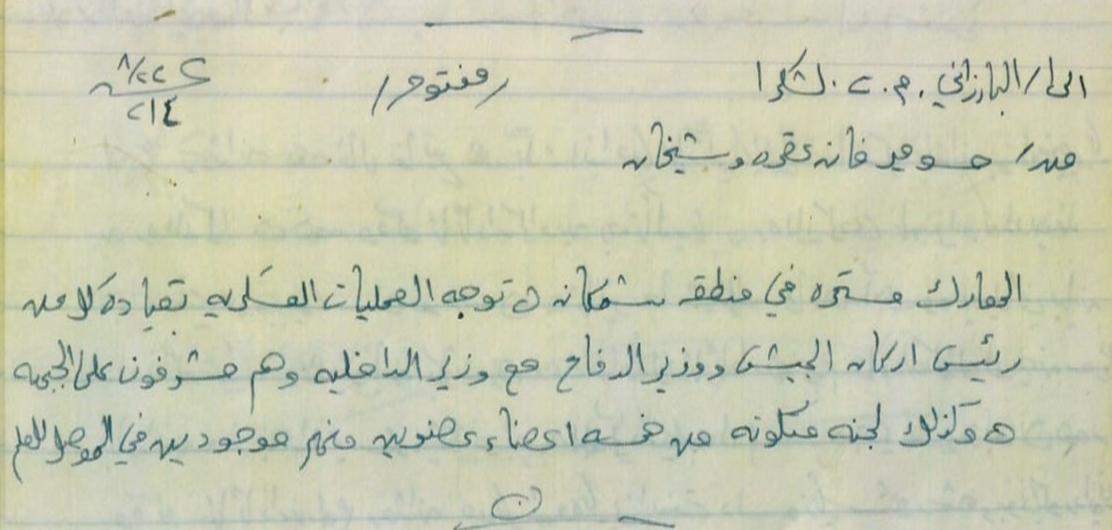 الى / البارزاني . م . ح . لشكر ١
/ مفتوح /
٨/٢٢
٢١٤
من / حسو ميرخان عقره وشيخان
المعارك مستمره في منطقه سمكان ه توجه العمليات العسكريه بقياده كلا من
رئيس اركان الجيش ووزير الدفاع مع وزير الداخليه وهم مشرفون على الجبهه
ه وكذلك لجنه متكونه من خمسه اعضاء عضوين منهم موجودين في الموصل للعلم